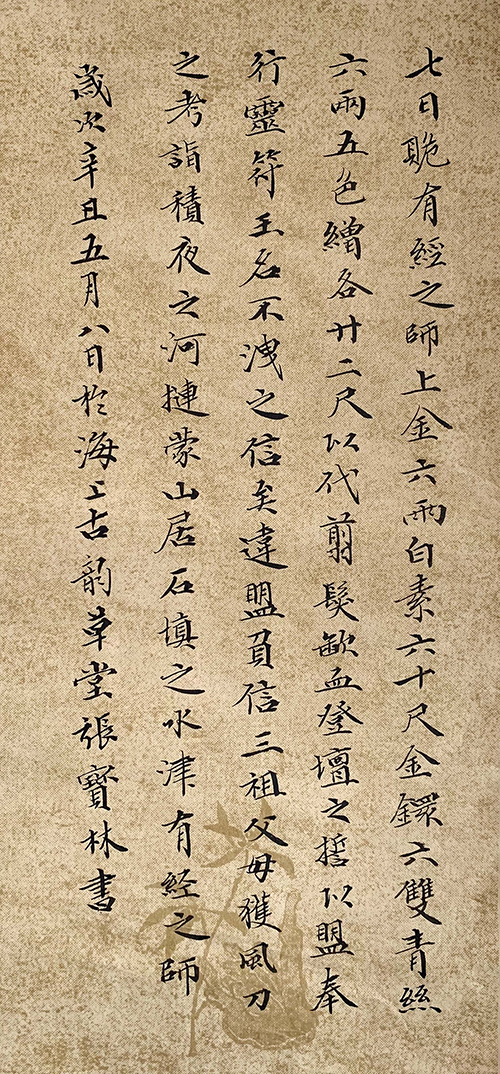 七日貽有經之師上金六兩白素六十尺金鐶六雙青絲
六兩五色繒各廿二尺以代翦髮歃血登壇之誓以盟奉
行靈符玉名不洩之信矣違盟負信三祖父母獲風刀
之考詣積夜之河摙蒙山居石填之水津有經之師
歲次辛丑五月八日於海上古韵草堂張寶林書